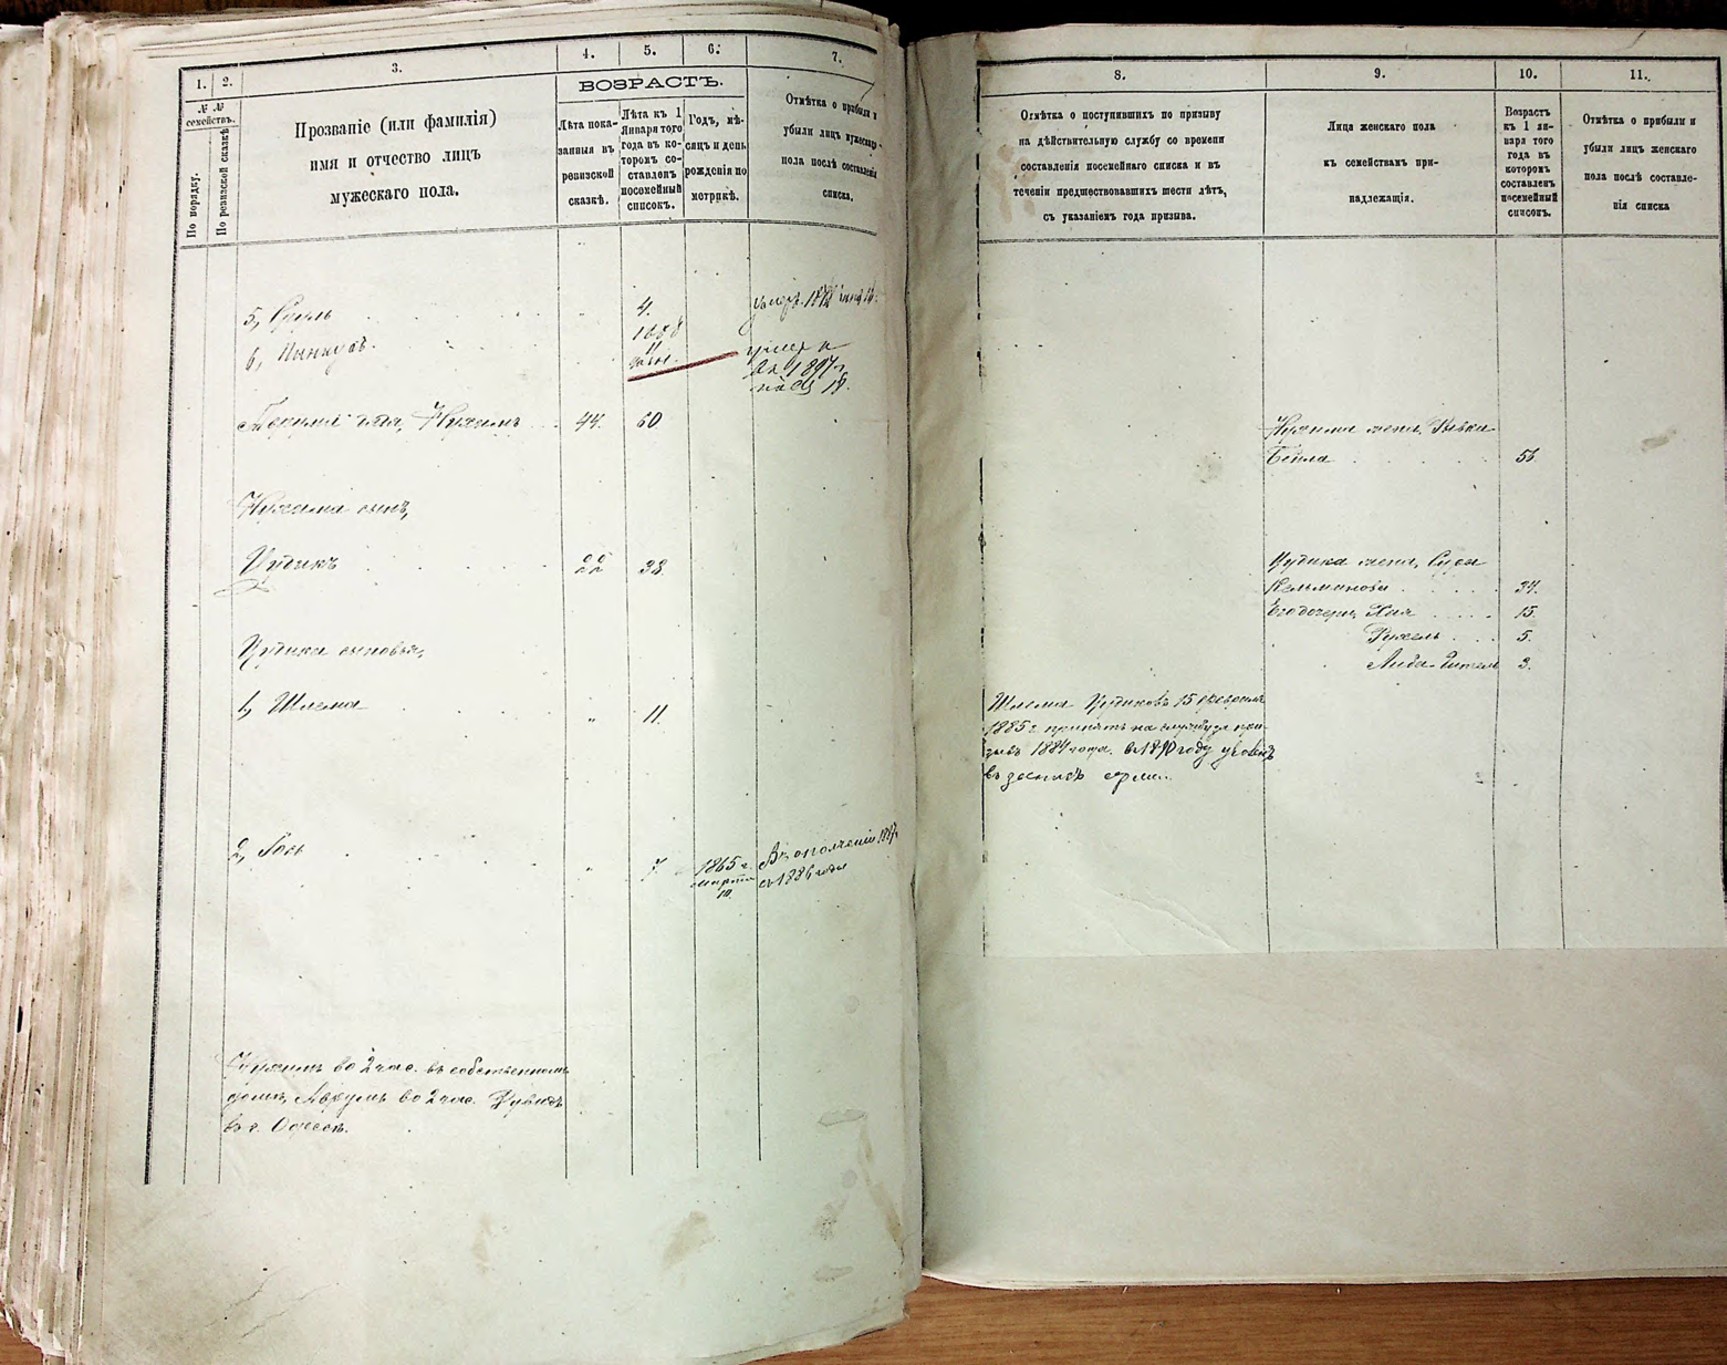 1.
2.
3.
4.
5.
6.
7.
№ №
семействъ.
По порядку.
По ревизской сказкѣ
Прозваніе (или фамилія)
имя и отчество лицъ
мужескаго пола.
ВОЗРАСТЪ.
Лѣта пока-
занныя въ
ревизской
сказкѣ.
Лѣта къ 1
Января того
года въ ко-
торомъ со-
ставленъ
посемейный
списокъ.
Годъ, мѣ-
сяцъ и день
рожденія по
метрикѣ.
Отмѣтка о прибыли и
убыли лицъ мужескаго
пола послѣ составленія
списка.
5, Сруль 4.
6, Пинкусъ.
1888
11
умеръ
въ 1897 г.
18.
Нухимъ 44. 60
Нухима сынъ,
Иудикъ 22 38.
Иудика сыновья,
1, Шлема „ 11.
2, „ 7 1865 г. Въ ополченіи
марта
10.
съ 1886 года
Нухимъ во 2 час. въ собственномъ
домѣ, Аврумъ во 2 час. Дувидъ
въ г. Одессѣ.
8.
9.
10.
11.
Отмѣтка о поступившихъ по призыву
на дѣйствительную службу со времени
составленія посемейнаго списка и въ
теченіи предшествовавшихъ шести лѣтъ,
съ указаніемъ года призыва.
Лица женскаго пола
къ семействамъ при-
надлежащія.
Возрастъ
къ 1 ян-
варя того
года въ
которомъ
составленъ
посемейный
списокъ.
Отмѣтка о прибыли и
убыли лицъ женскаго
пола послѣ составле-
нія списка
Нухима жена, Ривка
Бейла 56
Иудика жена, Сура
Кельманова 34.
Его дочери, Хая 15.
Рухель 5.
3.
Шлема Иудиковъ 15 февраля
1885 г. принятъ на службу при-
зыва 1884 года. въ 1890 году уволенъ
въ запасъ арміи.